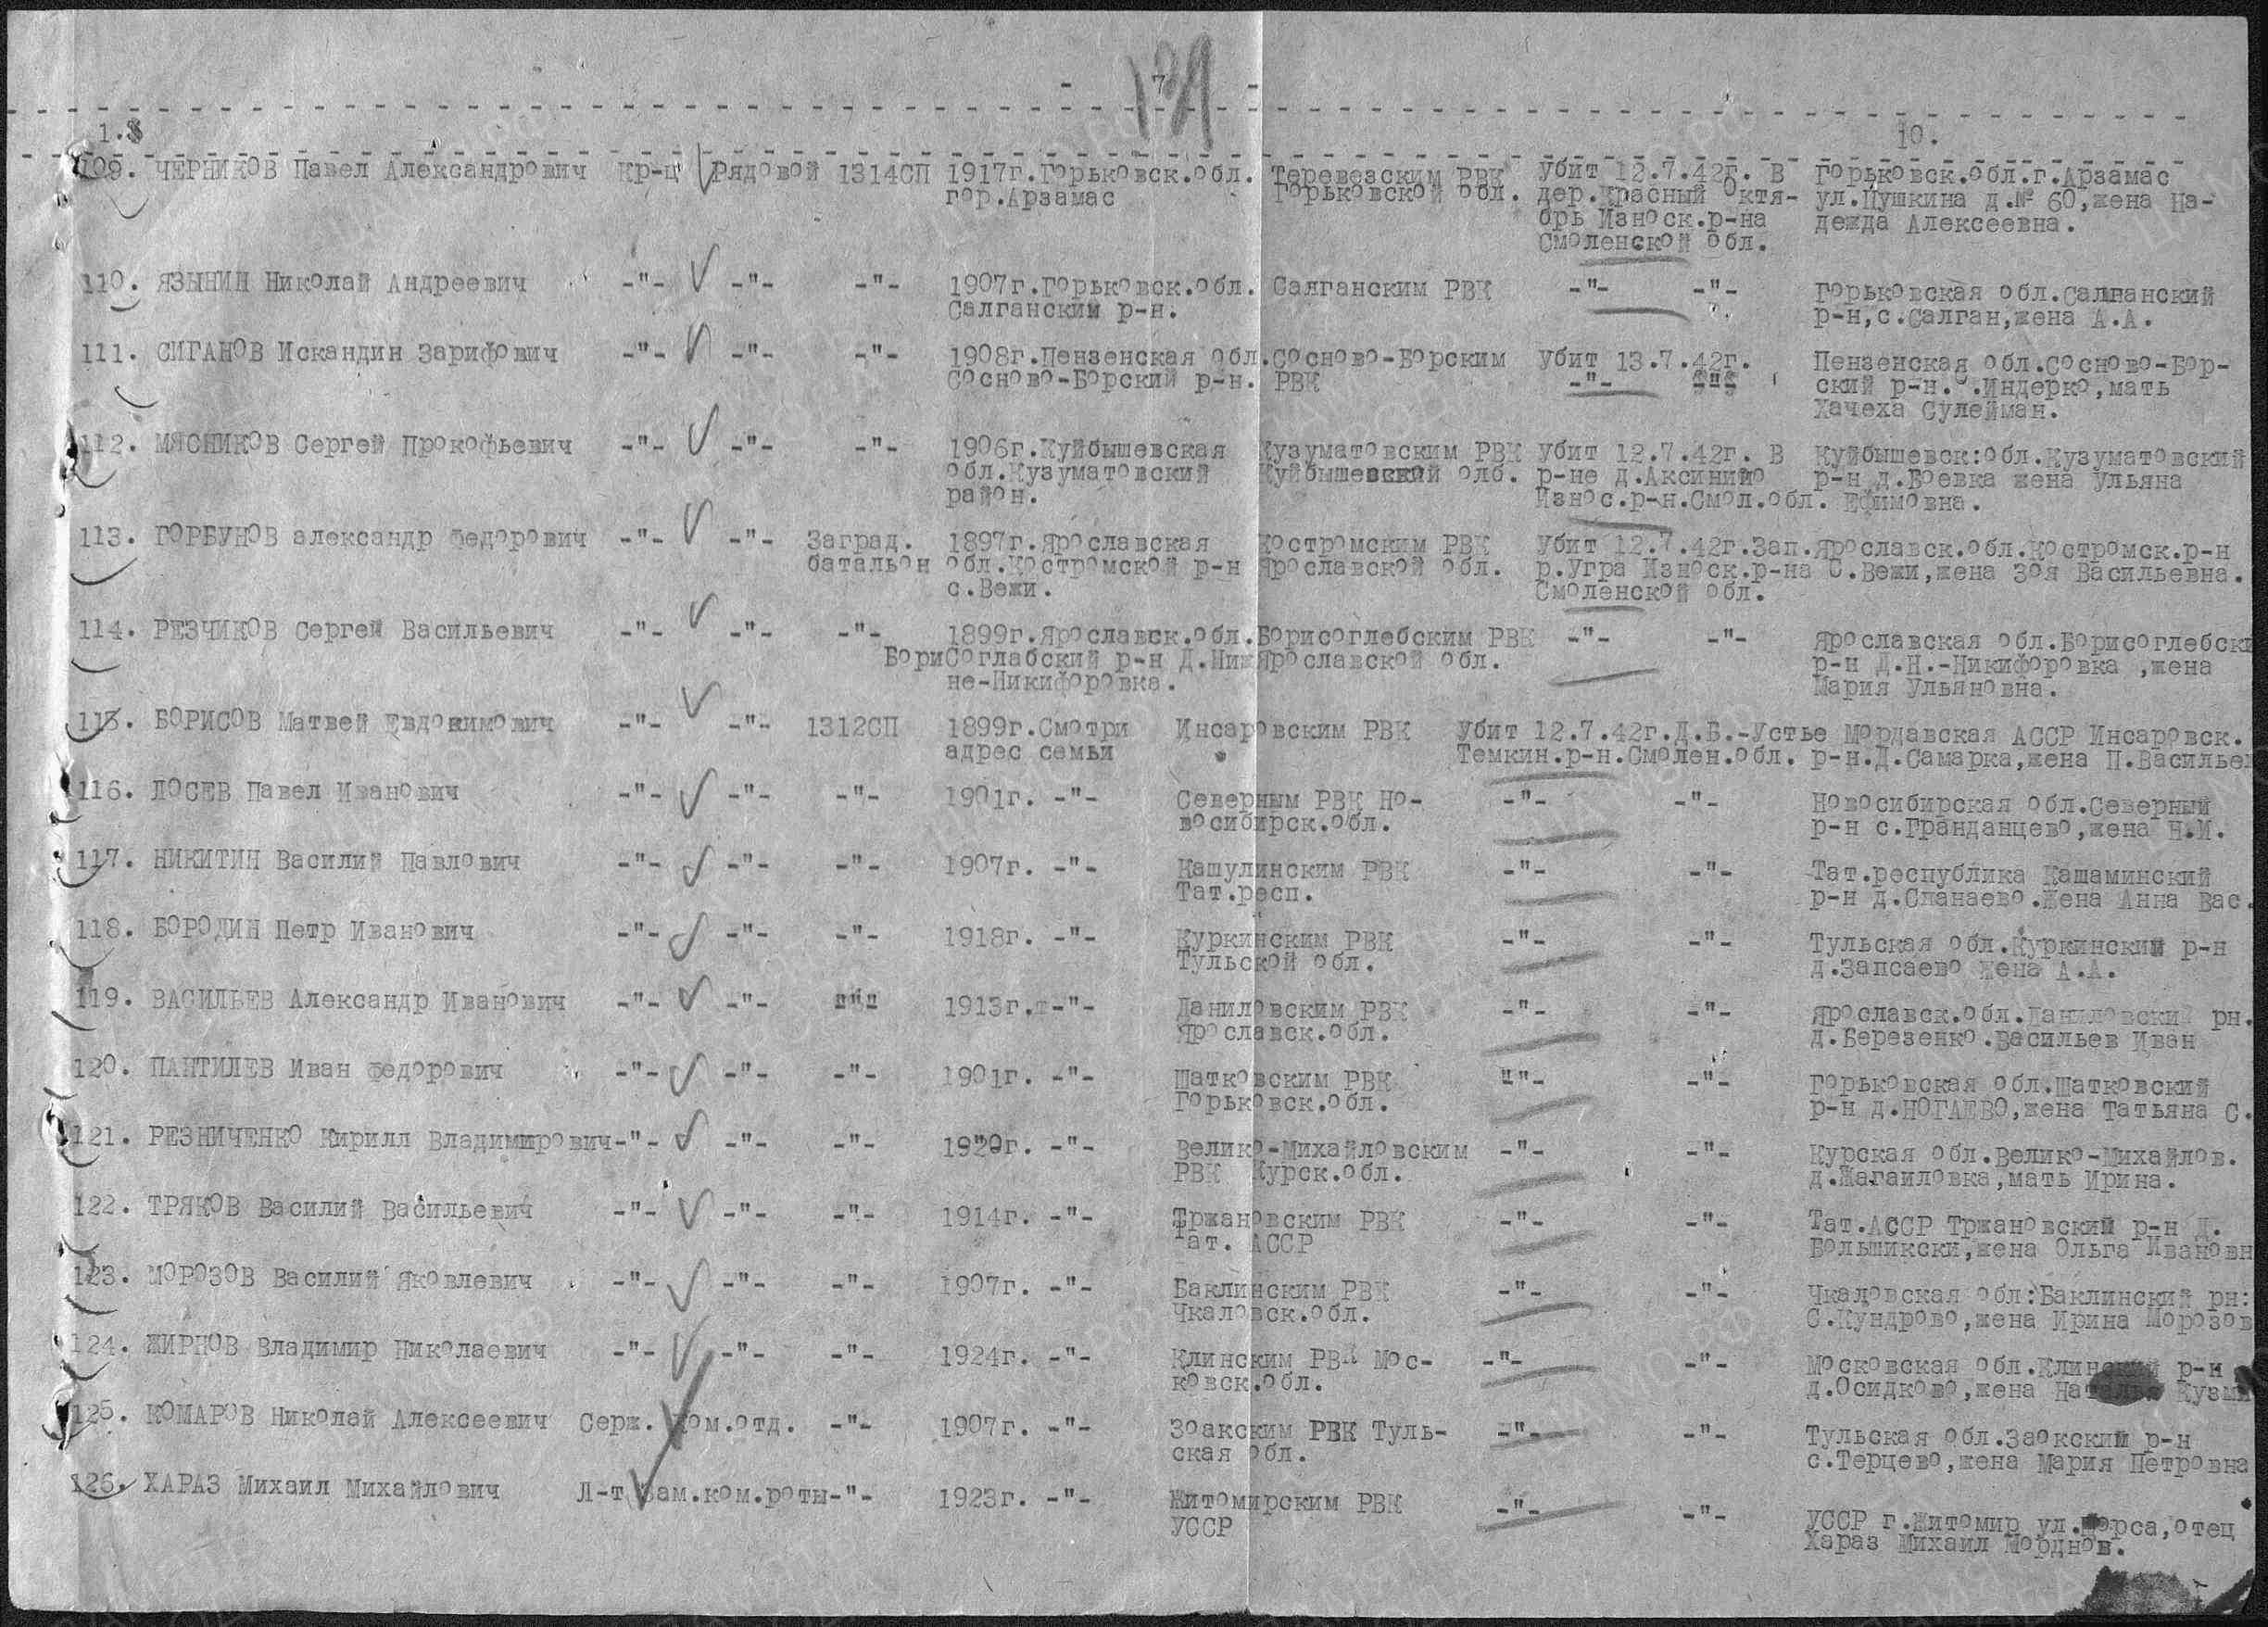 - 7 -
1.3 10.
109. ЧЕРНИКОВ Павел Александрович Кр-ц Рядовой 1314СП 1917г.Горьковск.обл. Теревезским РВК Убит 12.7.42г. В Горьковск.обл.г.Арзамас
гор.Арзамас Горьковской обл. дер.Красный Октя- ул.Пушкина д.№ 60,жена На-
брь Износк.р-на дежда Алексеевна.
Смоленской обл.
110. ЯЗЫНИН Николай Андреевич -"- -"- -"- 1907г.Горьковск.обл. Салганским РВК -"- -"- Горьковская обл.Салганский
Салганским р-н. р-н,с.Салган,жена А.А.
111. СИГАНОВ Искандин Зарифович -"- -"- -"- 1908г.Пензенская обл.Сосново-Борским Убит 13.7.42г. Пензенская обл.Сосново-Бор-
Сосново-Борский р-н. РВК -"- -"- ский р-н. .Индерко,мать
Хачеха Сулейман.
112. МЯСНИКОВ Сергей Прокофьевич -"- -"- -"- 1906г.Куйбышевская Кузуматовским РВК Убит 12.7.42г. В Куйбышевск:обл.Кузуматовский
обл.Кузуматовский Куйбышевский олб. р-не д.Аксинийо р-н д.Боевка жена Ульяна
район. Износ.р-н.Смол.обл. Ефимовна.
113. ГОРБУНОВ александр Федорович -"- -"- Заград. 1897г.Ярославская Костромским РВК Убит 12.7.42г.Зап.Ярославск.обл.Костромск.р-н
батальон обл.Костромской р-н Ярославской обл. р.Угра Износк.р-на С.Вежи,жена Зоя Васильевна.
с.Вежи. Смоленской обл.
114. РЕЗЧИКОВ Сергей Васильевич -"- -"- -"- 1899г.Ярославск.обл.Борисоглебским РВК -"- -"- Ярославская обл.Борисоглебски
БориСоглабский р-н Д.Ниж Ярославской обл. р-н Д.Н.-Никифоровка ,жена
не-Никифоровка. Мария Ульяновна.
115. БОРИСОВ Матвей Евдокимович -"- -"- 1312СП 1899г.Смотри Инсаровским РВК Убит 12.7.42г.Д.В.-Устье Мордавская АССР Инсаровск.
адрес семьи Темкин.р-н.Смолен.обл. р-н.Д.Самарка,жена П.Василье
116. ЛОСЕВ Павел Иванович -"- -"- -"- 1901г. -"- Северным РВК Но- -"- -"- Новосибирская обл.Северный
восибирск.обл. р-н с.Гранданцево,жена Н.И.
117. НИКИТИН Василий Павлович -"- -"- -"- 1907г. -"- Кашулинским РВК -"- -"- Тат.республика Кашаминский
Тат.респ. р-н д.Спанаево.Жена Анна Вас.
118. БОРОДИН Петр Иванович -"- -"- -"- 1918г. -"- Куркинским РВК -"- -"- Тульская обл.Куркинский р-н
Тульской обл. д.Запсаево жена А.А.
119. ВАСИЛЬЕВ Александр Иванович -"- -"- -"- 1913г. -"- Даниловским РВК -"- -"- Ярославск.обл.Даниловский рн.
Ярославск.обл. д.Березенко.Васильев Иван
120. ПАНТИЛЕВ Иван Федорович -"- -"- -"- 1901г. -"- Шатковским РВК -"- -"- Горьковская обл.Шатковский
Горьковск.обл. р-н д.НОГАЕВО,жена Татьяна С.
121. РЕЗНИЧЕНКО Кирилл Владимирович-"- -"- -"- 1920г. -"- Велико-Михайловским -"- -"- Курская обл.Велико-Михайлов.
РВК Курск.обл. д.Жагаиловка,мать Ирина.
122. ТРЯКОВ Василий Васильевич -"- -"- -"- 1914г. -"- Тржановским РВК -"- -"- Тат.АССР Тржановский р-н Д.
Тат. АССР Большикски,жена Ольга Ивановн
123. МОРОЗОВ Василий Яковлевич -"- -"- -"- 1907г. -"- Баклинским РВК -"- -"- Чкаловская обл:Баклинский рн:
Чкаловск.обл. С.Кундрово,жена Ирина Морозов
124. ЖИРНОВ Владимир Николаевич -"- -"- -"- 1924г. -"- Клинским РВК Мос- -"- -"- Московская обл.Клинский р-н
ковск.обл. д.Осидково,жена Наталья Кузьм
125. КОМАРОВ Николай Алексеевич Серж. Ком.отд. -"- 1907г. -"- Зоакским РВК Туль- -"- -"- Тульская обл.Заокский р-н
ская обл. с.Терцево,жена Мария Петровна
126. ХАРАЗ Михаил Михайлович Л-т Зам.ком.роты-"- 1923г. -"- Житомирским РВК -"- -"- УССР г.Житомир ул.Щорса,отец
УССР Хараз Михаил Морднов.